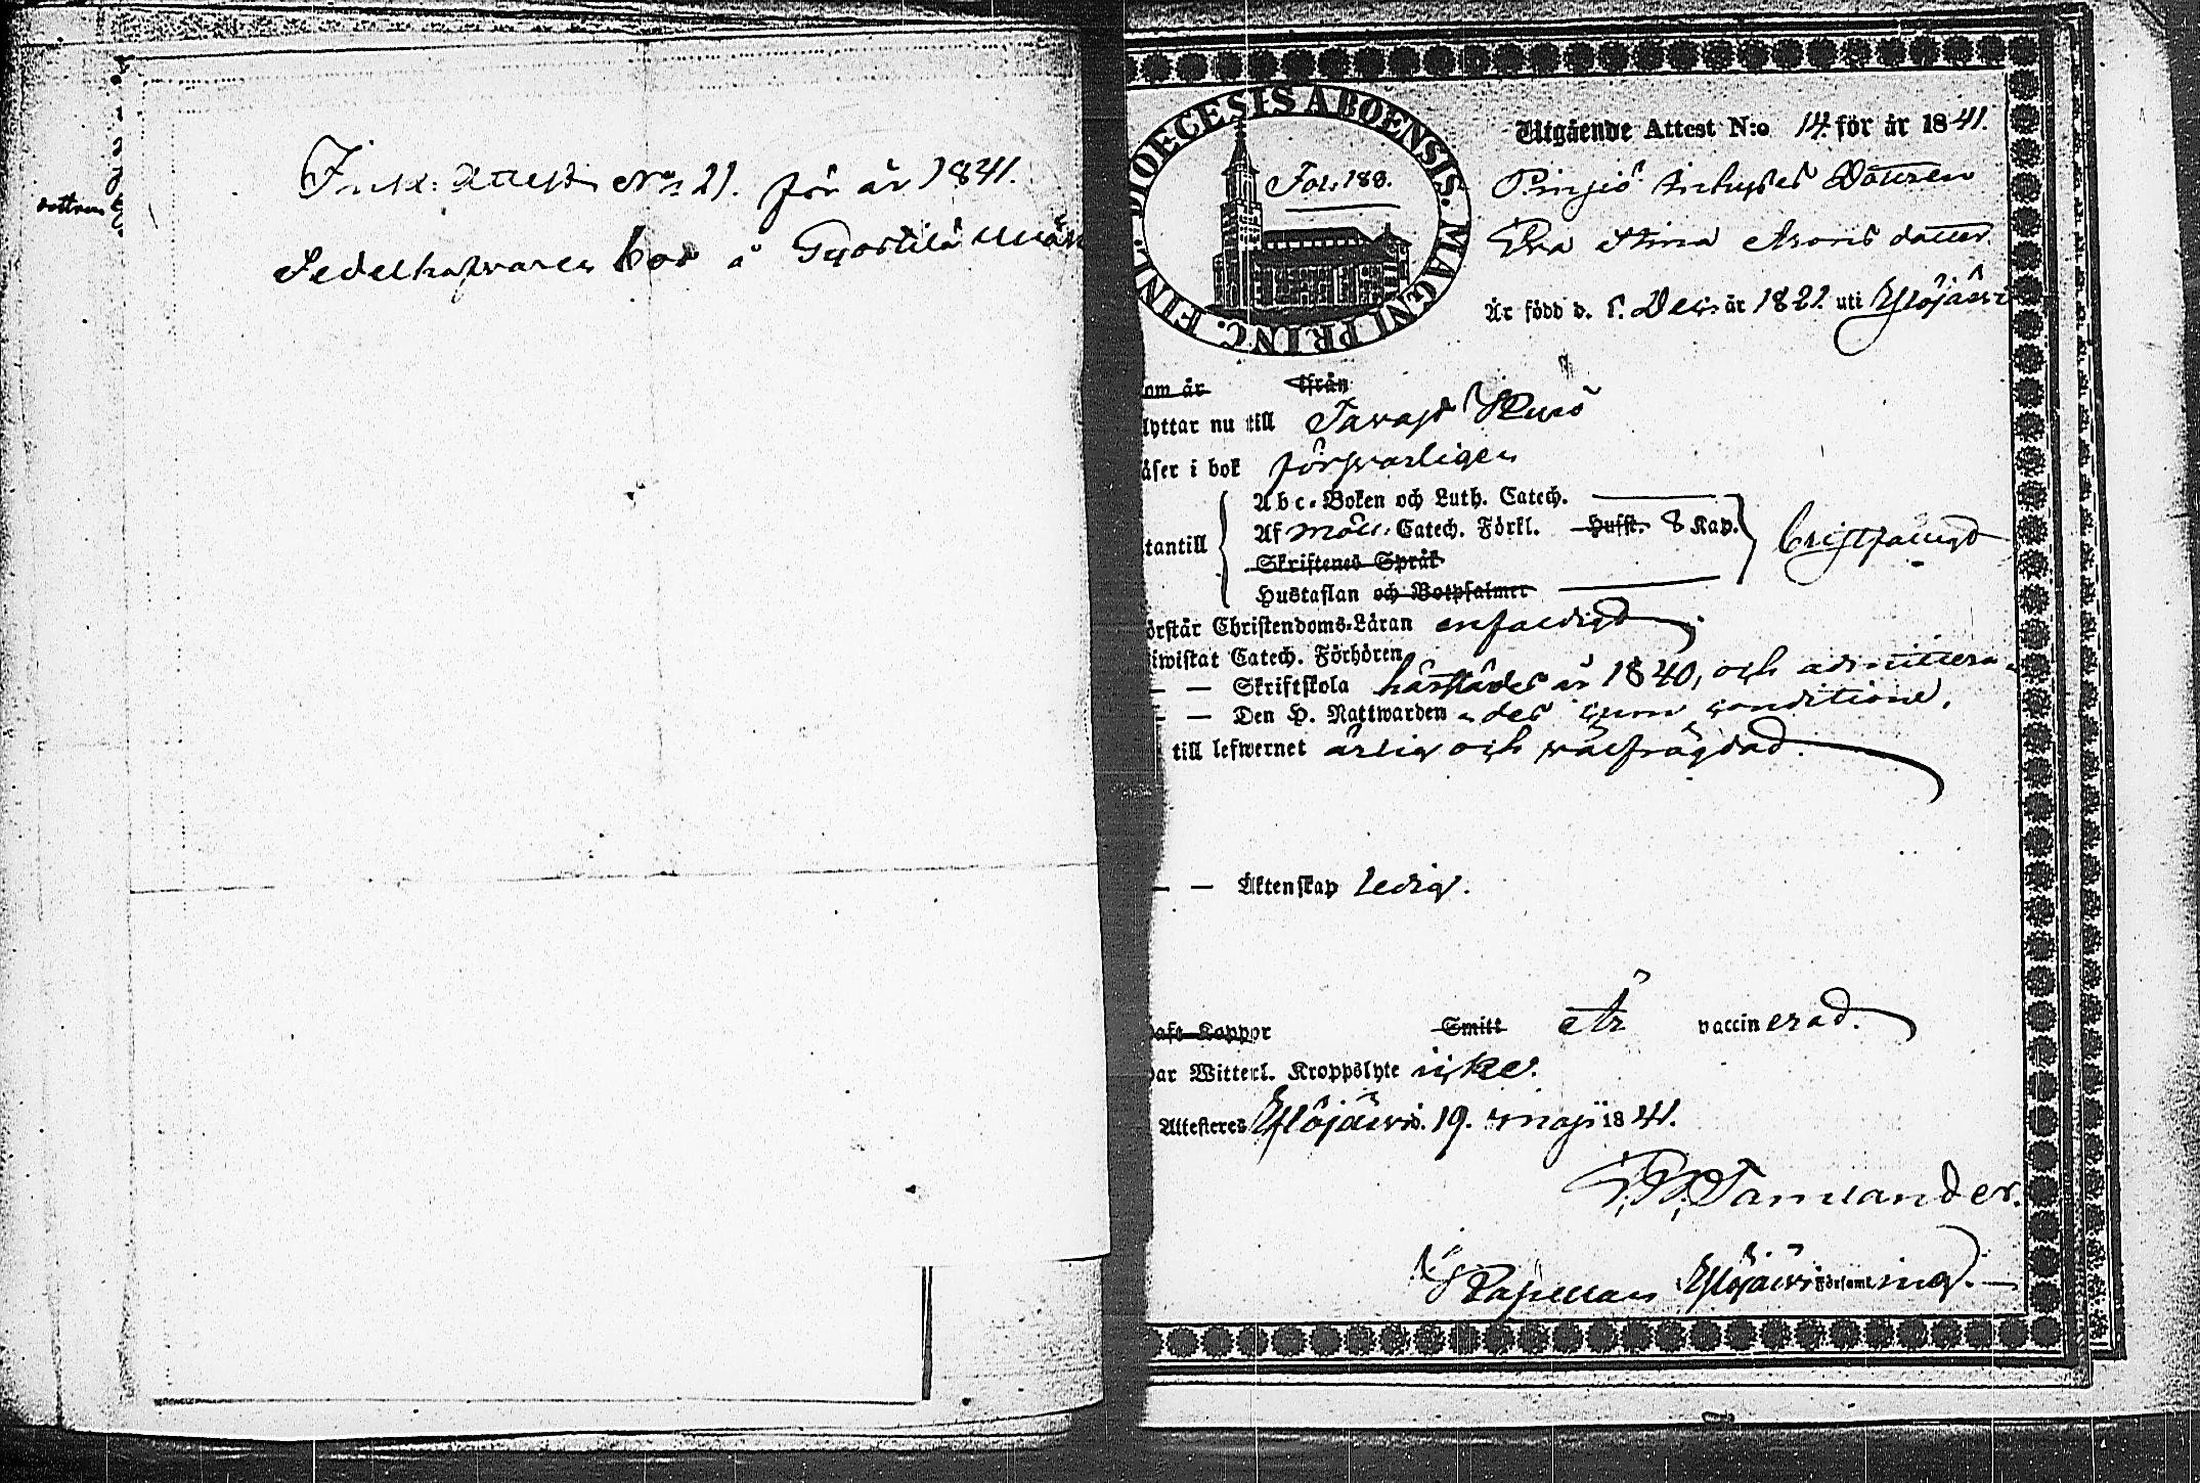 Ink: Attest No 21. för år 1841.
Sedelhafvaren bor å
DIOECESIS ABOENSIS. MAGNI PRINC. FINL.
Fol. 188.
Utgående Attest N:o 14. för år 1841.
Dottren
Eva Stina Arons dotter.
Är född d. 8. Dec. år 1821. uti Ylöjärvi
om är ifrån
lyttar nu till Tavast Kyrö
äser i bok försvarligen
Abc-Boken och Luth. Catech.
Af Möll. Catech. Förkl. Hufst. 8 Kap.
tantill
Skriftenes Språk
Hustaflan och Botpsalmer
bristfäligt
örstår Christendoms-Läran enfaldigt
iwistat Catech. Förhören
— — Skriftskola härstädes år 1840, och admittera-
— — Den H. Nattwarden -des cum conditione.
till lefwernet ärlig och välfrägdad.
— — Äktenskap ledig.
aft Koppor Smitt Är vaccinerad.
ar Witterl. Kroppslyte icke.
Attesteras Ylöjärvi. 19. Maji 1841.
Tamlander.
Kapellan Ylöjärvi Församling.